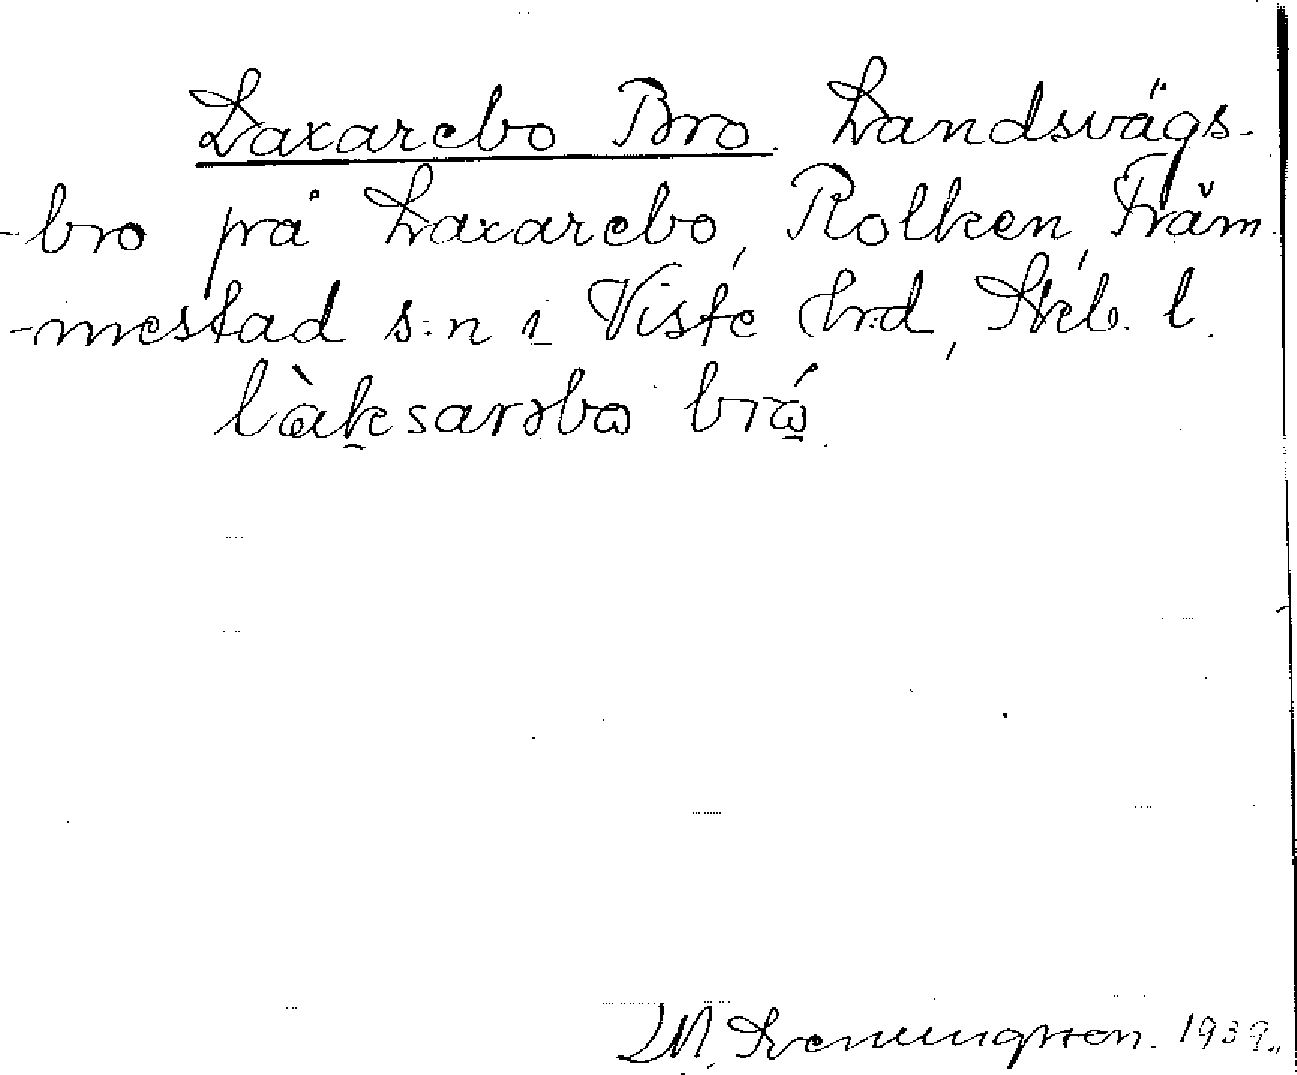 Laxarebo Bro. Landsvägs-
-bro på Laxarebo, Rolken, Träm-
-mestad s:n i Viste hrd, Skb. l.
làksarəbo bró.
LM. Svenungsson. 1939.